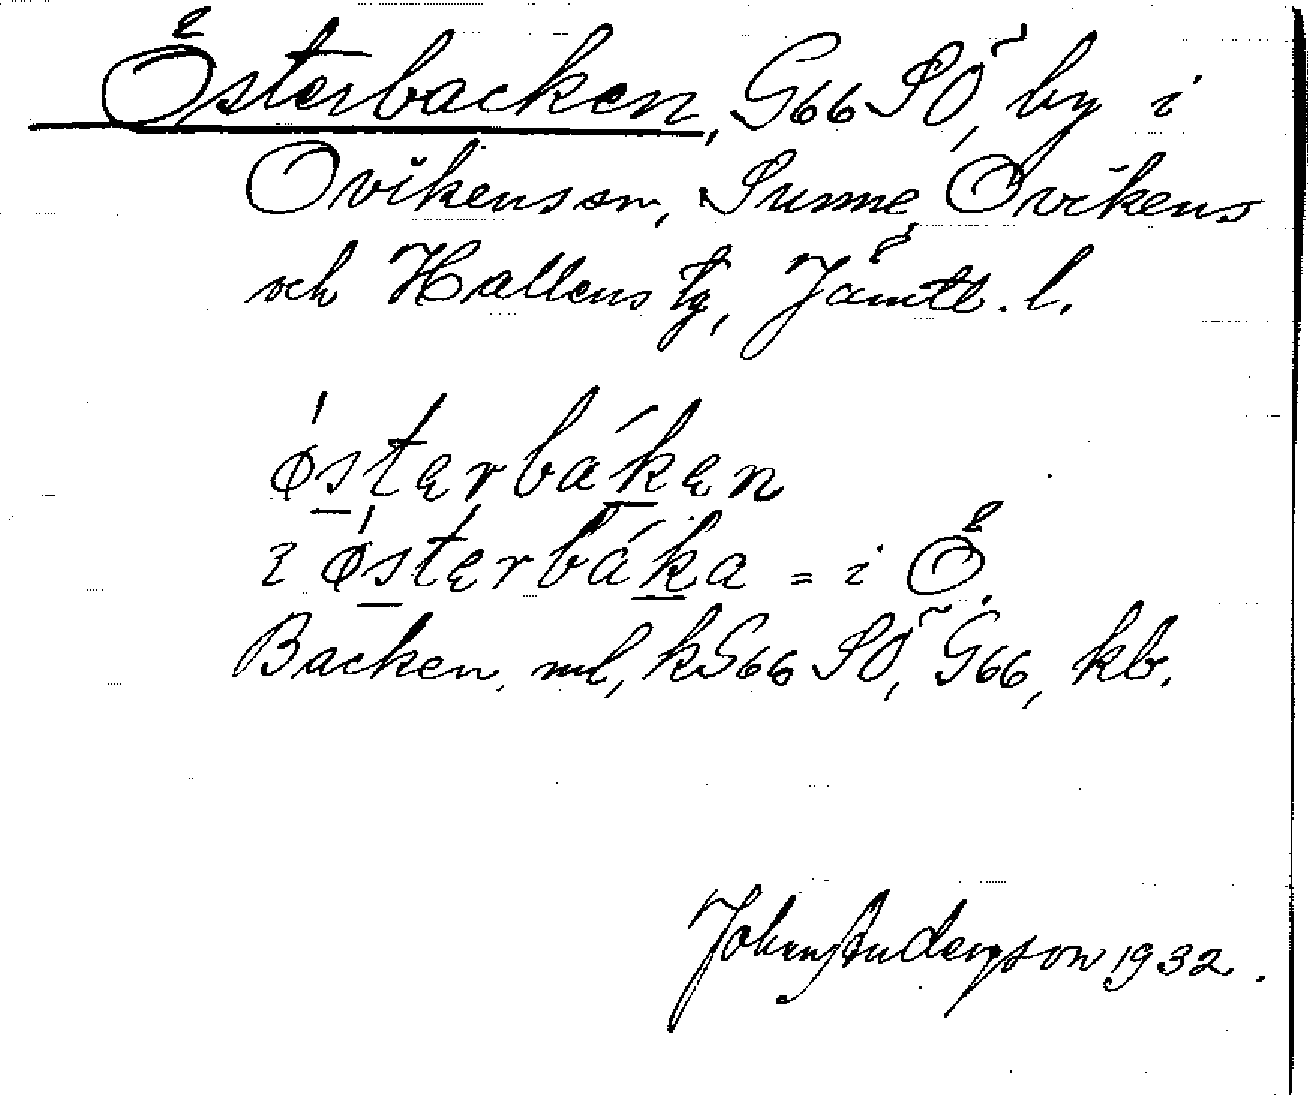 Österbacken, G66 SÖ, by i
Ovikens sn, Sunne, Ovikens
och Hallens tg, Jämtl. l.
ǿstęrbákęn
ı ǿstęrbáka = i Ö.
Backen, ml, kG66 SÖ, G66, kb.
John Andersson 1932.